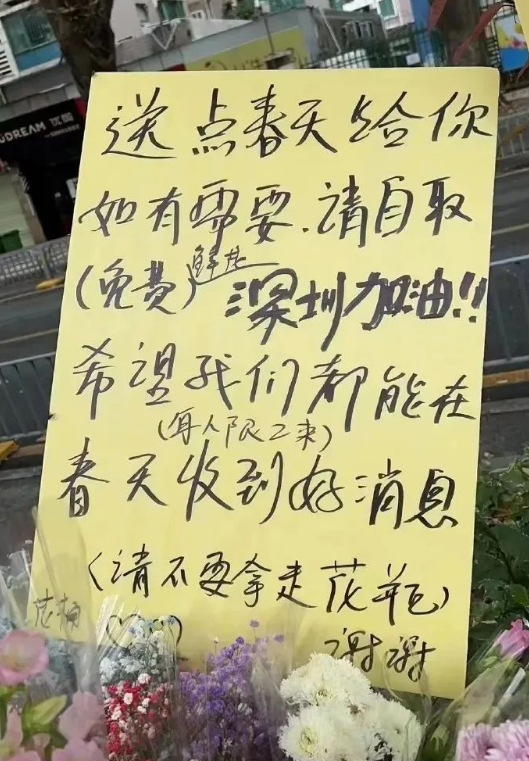 DREAM
送点春天给你
如有需要.请自取
(免费)鲜花 深圳加油!!
希望我们都能在
(每人限2束)
春天收到好消息
(请不要拿走花瓶)
谢谢